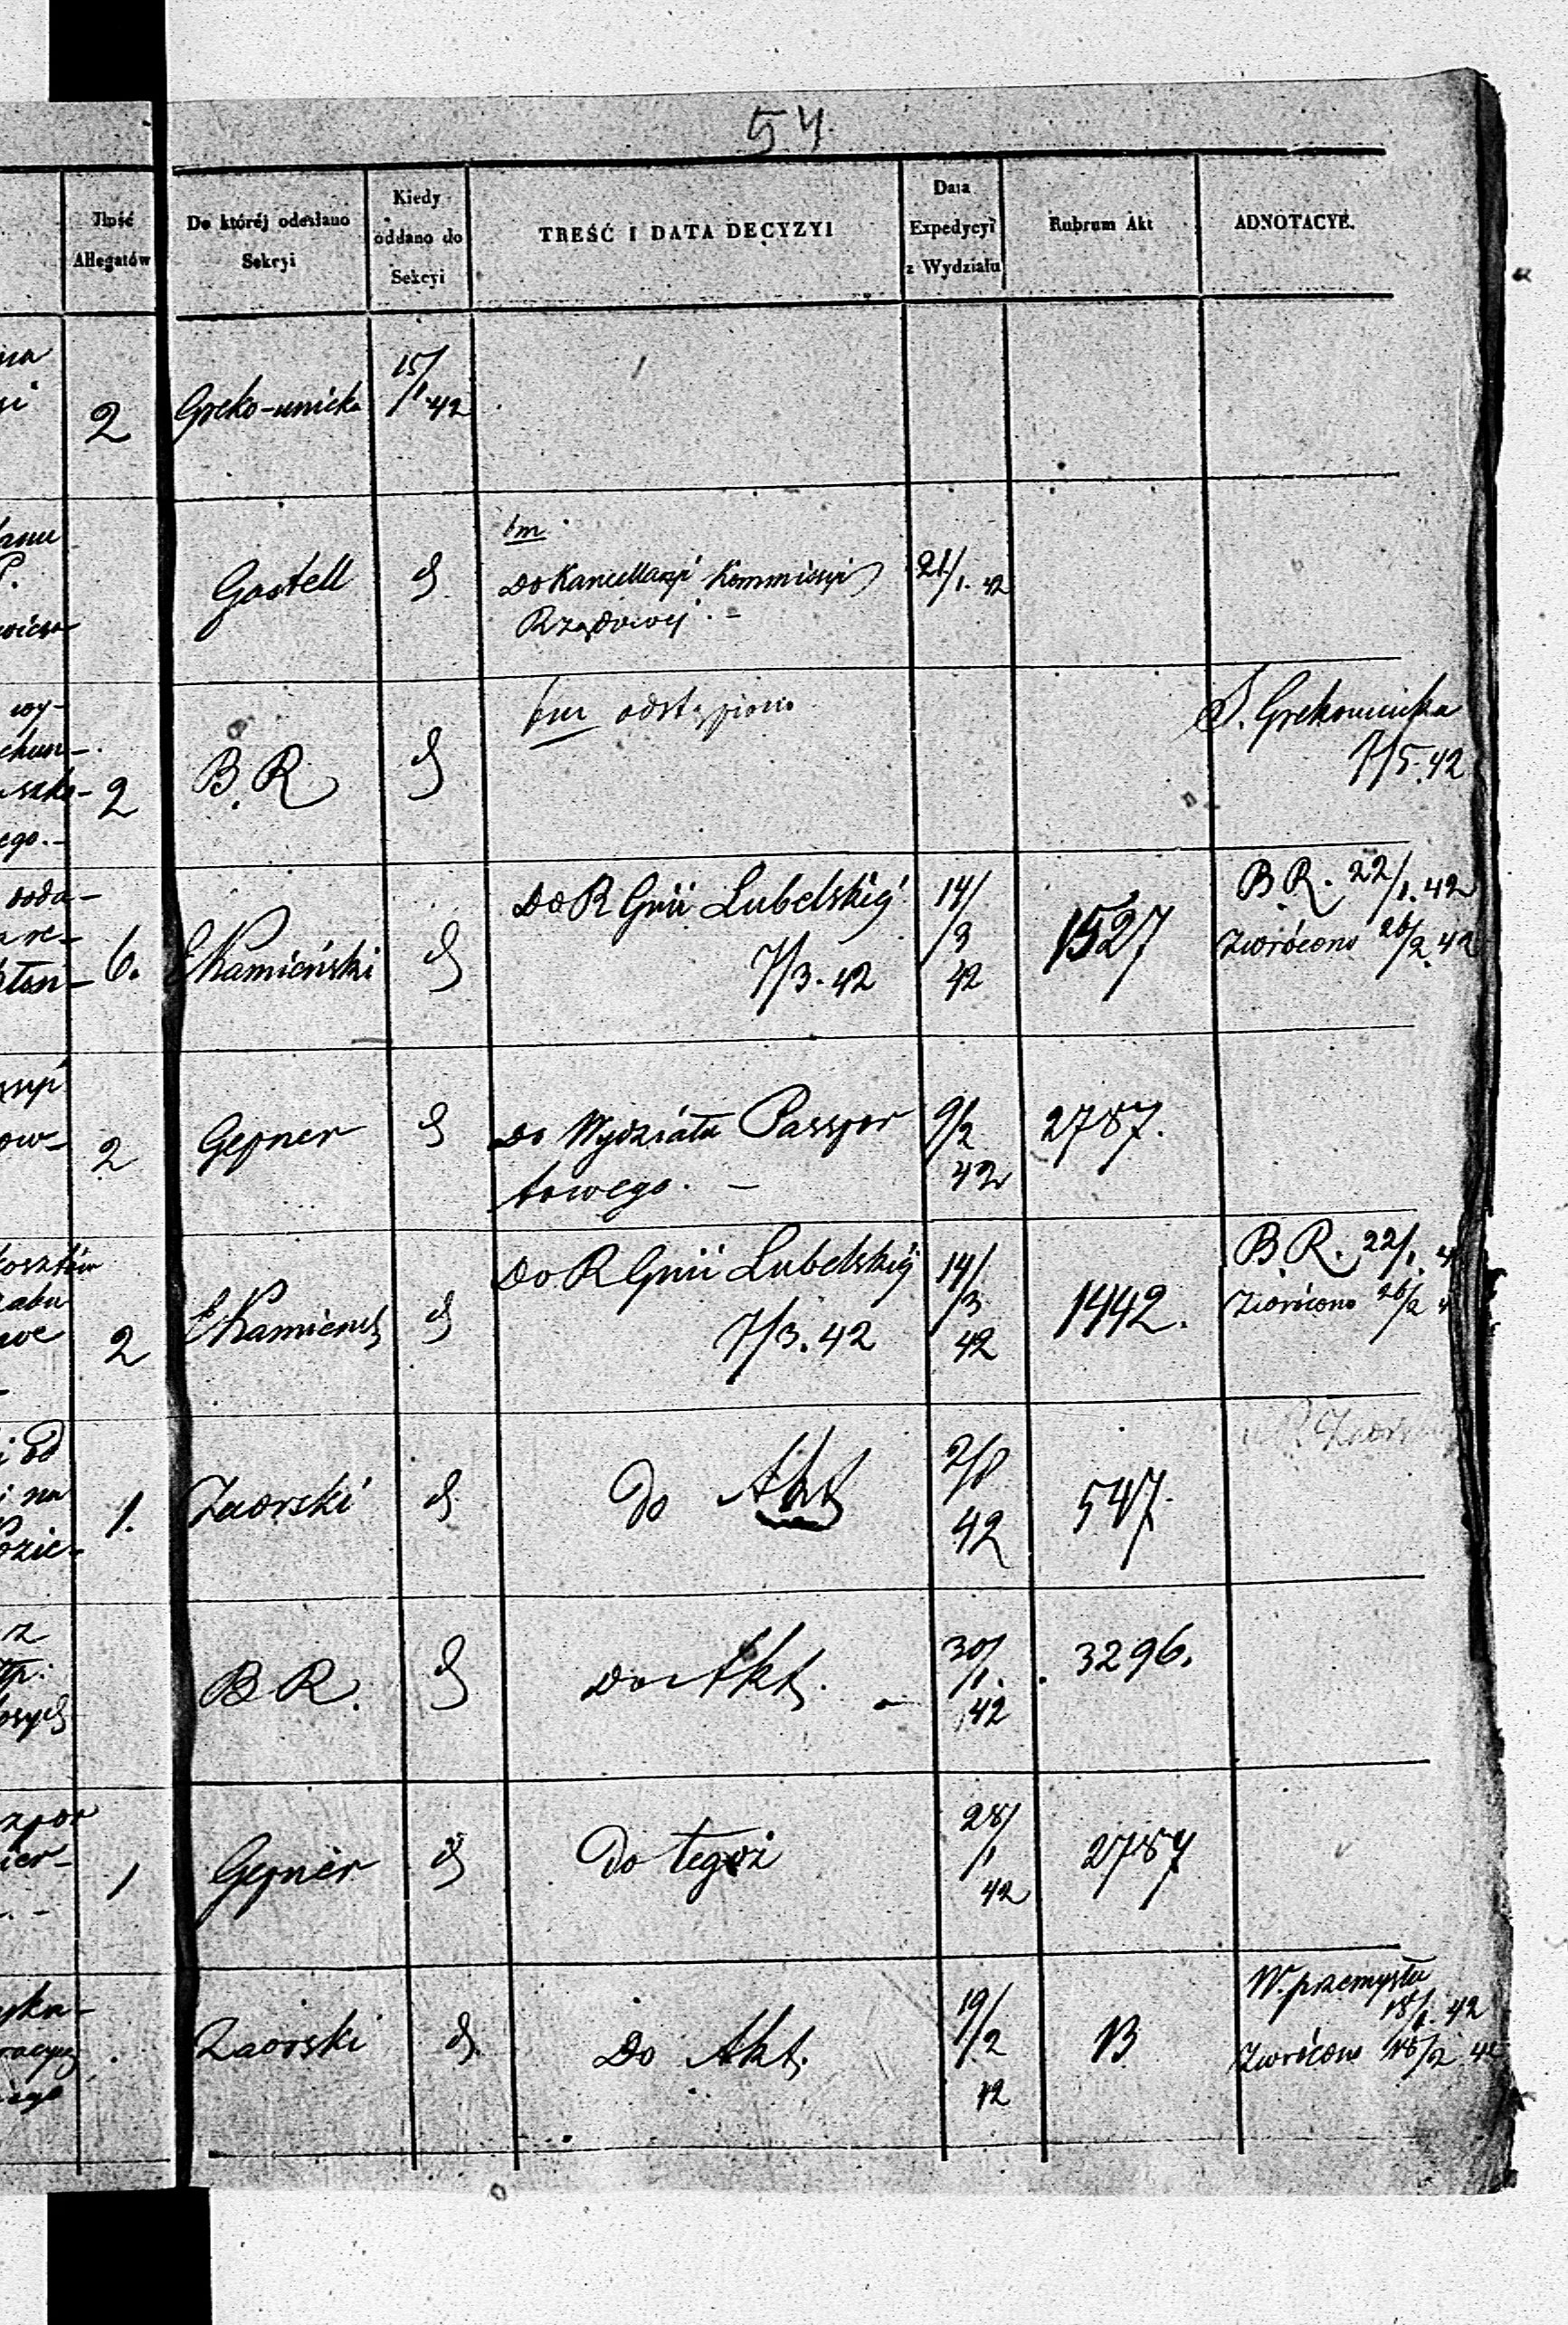 54.
Ilość Allegatów
Do któréj odesłano Sekcyi
Kiedy oddano do Sekcyi
TREŚĆ I DATA DECYZYI
Data Expedycyi z Wydziału
Rubrum Akt
ADNOTACYE.
2 Greko-unicka 15/1 42
Gastell
Do Kancellaryi Kommissyi 21/1. 42
Rządowej. -
wy-
2 B. R odstąpiono S. Grekounicka
7/5 42
ego.-
6. EKamieński Do R Gnii Lubelskiéj 14/3 42 1527 B.R. 22/1. 42
7/3. 42 Zwrócono 26/2 42
2 Gepner Do Wydziału Passpor 9/2 42 2787.
towego. -
2 EKamieńs Do R Gnii Lubelskiéj 14/3 42 1442. B.R. 22/1.
7/3. 42 Zwrócono 26/2
i od
i na
1. Zaorski Do Akt 42 547.
z
B R. Do Akt. - 30/1. 42 3296.
1 Gepner Do tegoż 28/1 42 2787
Zaorski Do Akt. 19/2 42 13 W. przemysłu
18/1. 42
Zwrócono 18/2 42